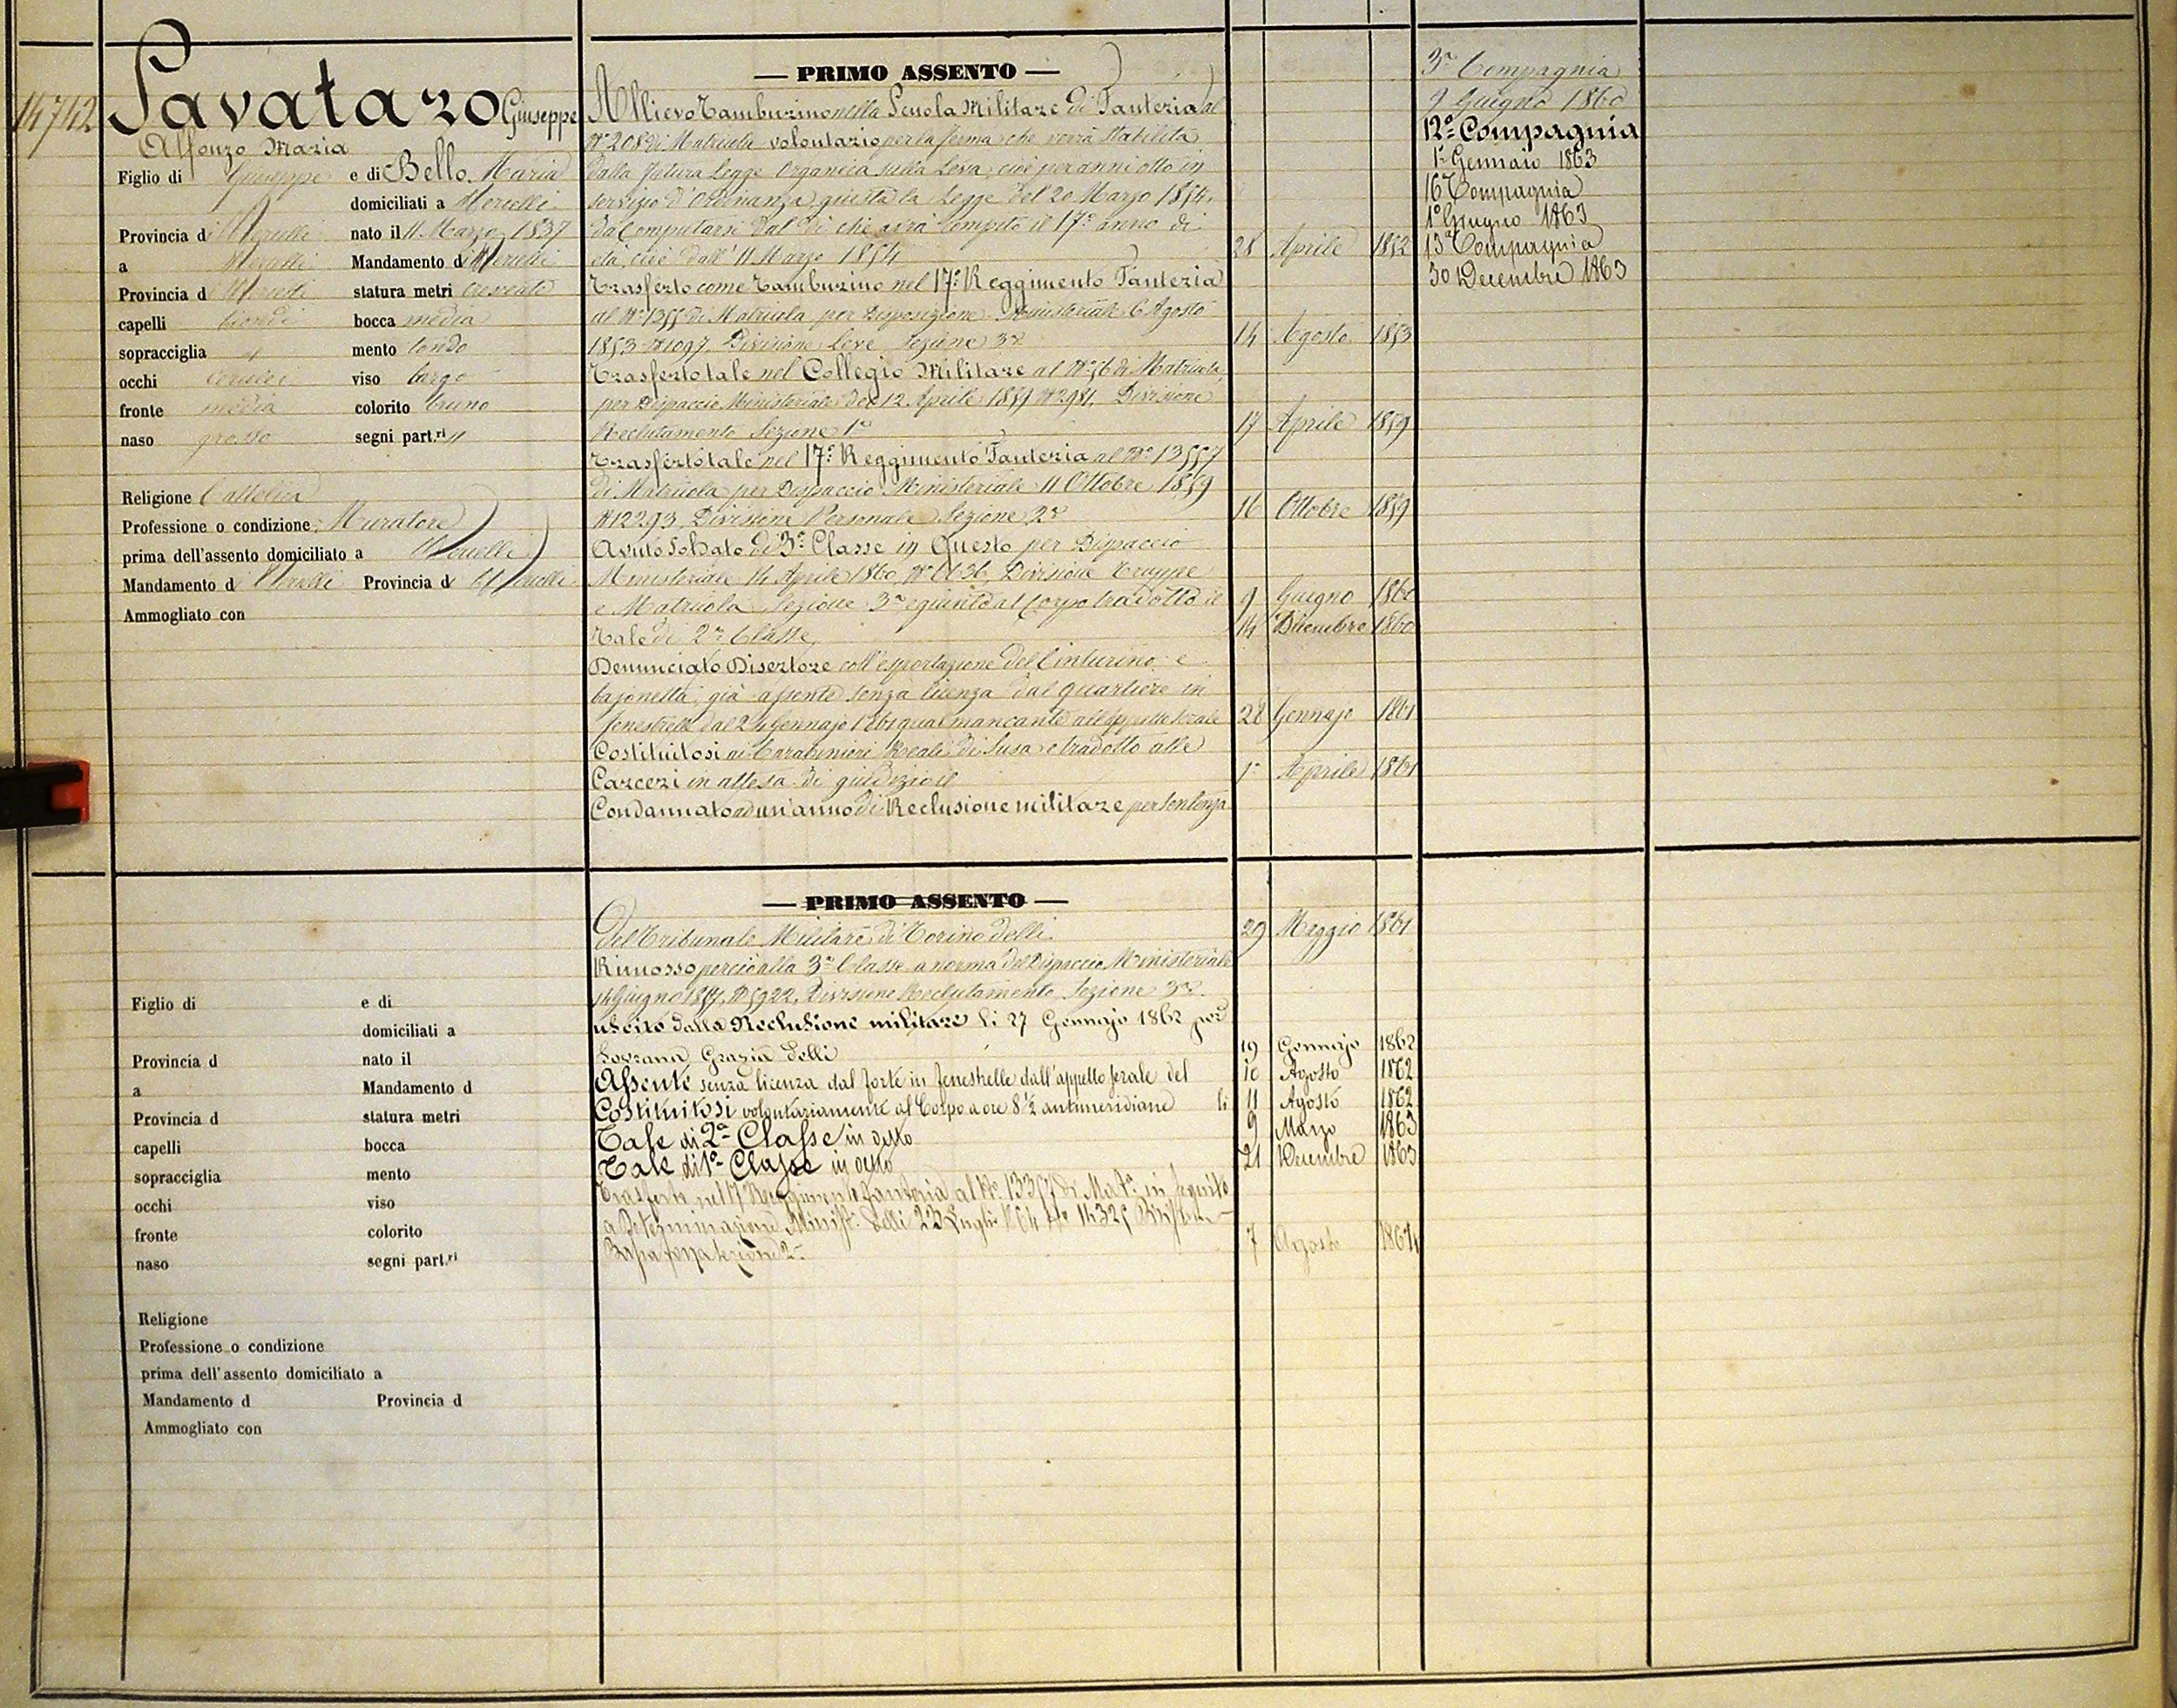 14742
Savatazo Giuseppe
Alfonzo Maria
Figlio di Giuseppe e di Bello Maria
domiciliati a Vercelli
Provincia di Vercelli nato il 11 Marzo 1837
a Vercelli Mandamento di Vercelli
Provincia di Vercelli statura metri crescente
capelli biondi bocca media
sopracciglia " mento tondo
occhi cerulei viso largo
fronte media colorito bruno
naso grosso segni part.ri "
Religione Cattolica
Professione o condizione Muratore
prima dell'assento domiciliato a Vercelli
Mandamento di Vercelli Provincia di Vercelli
Ammogliato con
— PRIMO ASSENTO —
Allievo Tamburino nella Scuola Militare di Fanteria al
N° 208 di Matricola volontario per la ferma che verrà stabilita
dalla futura Legge Organica sulla Leva, cioè per anni otto in
servizio d'Ordinanza giusta la Legge del 20 Marzo 1854,
da computarsi dal dì che avrà compito il 17° anno di
età, cioè dall' 11 Marzo 1854 28 Aprile 1852
Trasferto come Tamburino nel 17° Reggimento Fanteria
al N° di Matricola per Disposizione Ministeriale 6 Agosto
1853 N° 1097, Divisione Leve Sezione 3a 14 Agosto 1853
Trasferto tale nel Collegio Militare al N° 56 di Matricola
per Dispaccio Ministeriale del 12 Aprile 1859 N° 2981, Divisione
Reclutamento Sezione 1a 17 Aprile 1859
Trasferto tale nel 17° Reggimento Fanteria al N° 13557
di Matricola per Dispaccio Ministeriale 11 Ottobre 1859
N° 12293, Divisione Personale Sezione 2a 16 Ottobre 1859
Avuto Soldato di 3a Classe in Questo per Dispaccio
Ministeriale 14 Aprile 1860, N° Divisione Truppe
e Matricola Sezione 3a e giunto al Corpo tradotto il 9 Giugno 1860
Tale di 2a Classe 14 Dicembre 1860
Denunciato Disertore coll'esportazione del cinturino e
bajonetta, già assente senza licenza dal quartiere in
fenestrelle dal 24 Gennajo 1861 qual mancante all'appello serale 28 Gennajo 1861
Costituitosi ai Carabinieri Reali di Susa e tradotto alle
Carceri in attesa di giudizio il 1° Aprile 1861
Condannato ad un'anno di Reclusione militare per Sentenza
3a Compagnia
9 Giugno 1860
12a Compagnia
1° Gennaio 1863
16 Compagnia
1° Giugno 1863
13a Compagnia
30 Decembre 1863
— PRIMO ASSENTO —
Del Tribunale Militare di Torino delli 29 Maggio 1861
Rimosso perciò alla 3a Classe a norma del Dispaccio Ministeriale
14 Giugno N° 5922, Divisione Reclutamento Sezione 3a
uscito dalla Reclusione militare li 27 Gennajo 1862 per
Sovrana Grazia delli 19 Gennajo 1862
Assente senza licenza dal forte in fenestrelle dall'appello serale del 10 Agosto 1862
Costituitosi volontariamente al Corpo a ore 8½ antimeridiane li 11 Agosto 1862
Tale di 2a Classe in detto 9 Marzo 1863
Tale di 1a Classe in detto 21 Decembre 1863
Trasferto nel 17 Reggimento fanteria al N° 13357 di Mat.a in seguito
a Determinazione Minist. delli 23 Luglio 1864 N° 14325
Bassa forza Sezione 2a 7 Agosto 1864
Figlio di e di
domiciliati a
Provincia d nato il
a Mandamento d
Provincia d statura metri
capelli bocca
sopracciglia mento
occhi viso
fronte colorito
naso segni part.ri
Religione
Professione o condizione
prima dell'assento domiciliato a
Mandamento d Provincia d
Ammogliato con